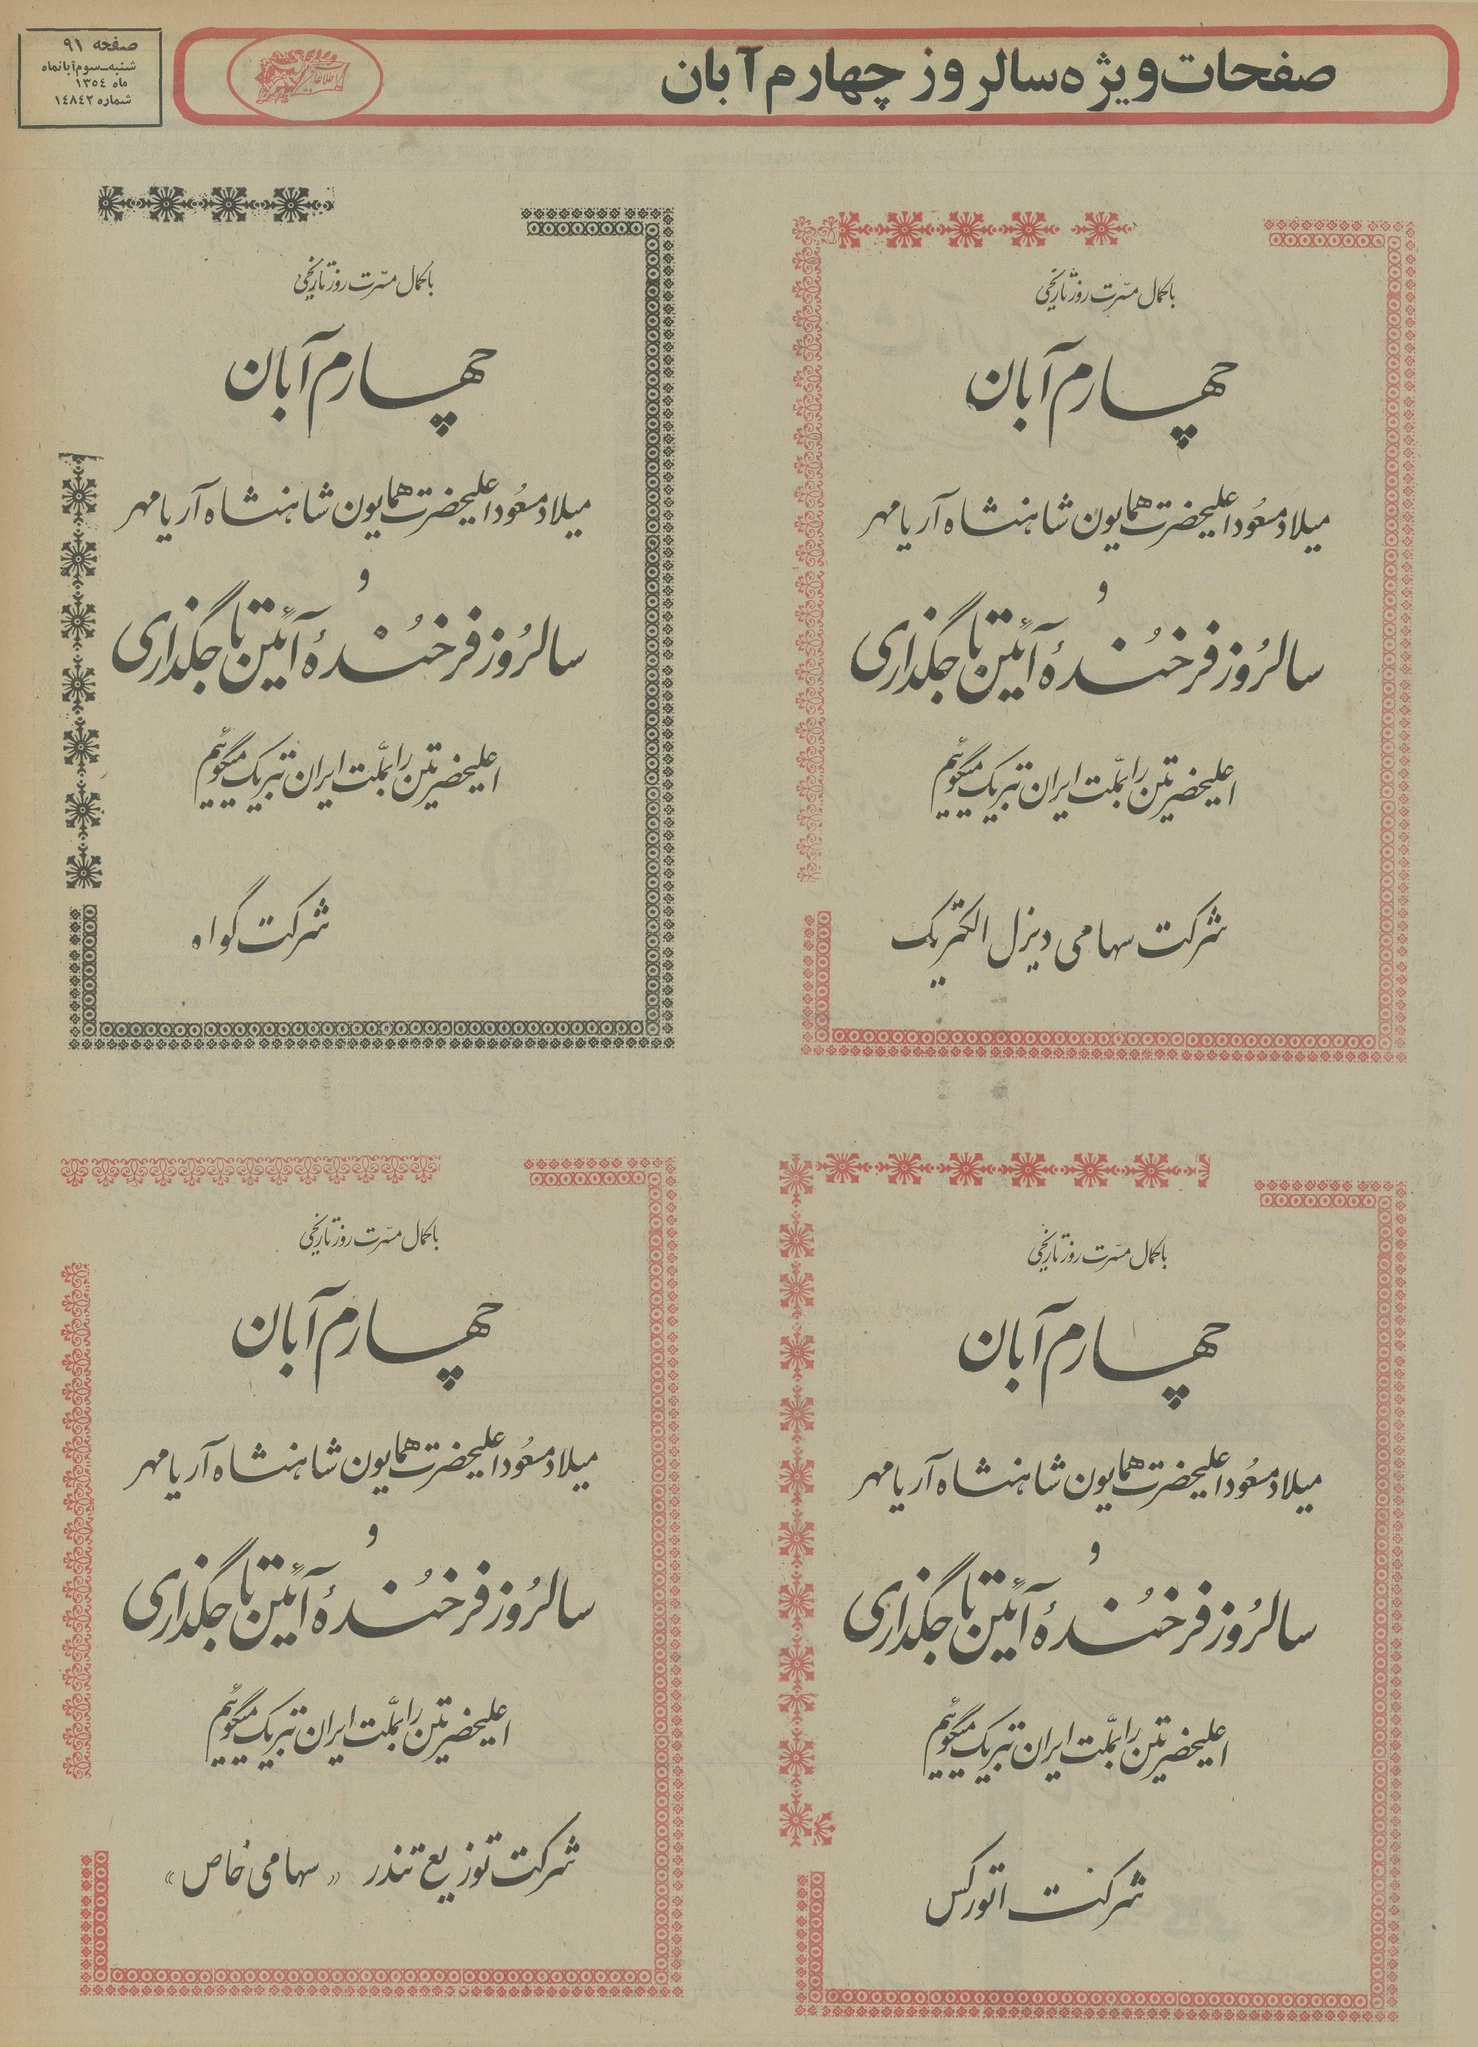 صفحات ویژه سالروز چهارم آبان
اطلاعات
صفحه ۹۱
شنبه ـ سوم آبانماه
ماه ۱۳۵۴
شماره ۱۴۸۴۲
با کمال مسرت روز تاریخی
چهارم آبان
میلاد مسعود اعلیحضرت همایون شاهنشاه آریامهر
و
سالروز فرخنده آئین تاجگذاری
اعلیحضرتین را بملت ایران تبریک میگوئیم
شرکت سهامی دیزل الکتریک
با کمال مسرت روز تاریخی
چهارم آبان
میلاد مسعود اعلیحضرت همایون شاهنشاه آریامهر
و
سالروز فرخندهٔ آئین تاجگذاری
اعلیحضرتین را بملت ایران تبریک میگوئیم
شرکت گواه
با کمال مسرت روز تاریخی
چهارم آبان
میلاد مسعود اعلیحضرت همایون شاهنشاه آریامهر
و
سالروز فرخندهٔ آئین تاجگذاری
اعلیحضرتین را بملت ایران تبریک میگوئیم
شرکت اتورکس
با کمال مسرت روز تاریخی
چهارم آبان
میلاد مسعود اعلیحضرت همایون شاهنشاه آریامهر
و
سالروز فرخندهٔ آئین تاجگذاری
اعلیحضرتین را بملت ایران تبریک میگوئیم
شرکت توزیع تندر «سهامی خاص»